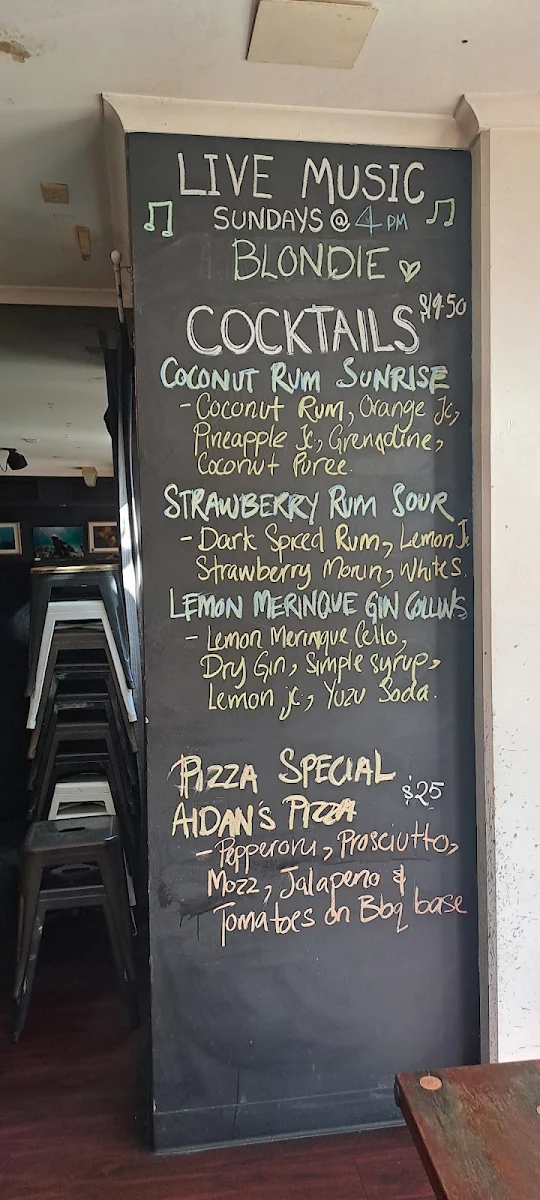 LIVE MUSIC
SUNDAYS @ 4 PM
BLONDIE
$19.50
COCKTAILS
COCONUT RUM SUNRISE
- Coconut Rum, Orange Jc,
Pineapple Jc, Grenadine,
Coconut Puree.
STRAWBERRY RUM SOUR
- Dark Spiced Rum, Lemon Jc
Strawberry Monin, Whites.
LEMON MERINGUE GIN COLLINS
- Lemon Meringue Cello,
Dry Gin, Simple syrup,
Lemon jc, Yuzu Soda.
PIZZA SPECIAL
$25
AIDAN'S PIZZA
- Pepperoni, Prosciutto,
Mozz, Jalapeno &
Tomatoes on Bbq base